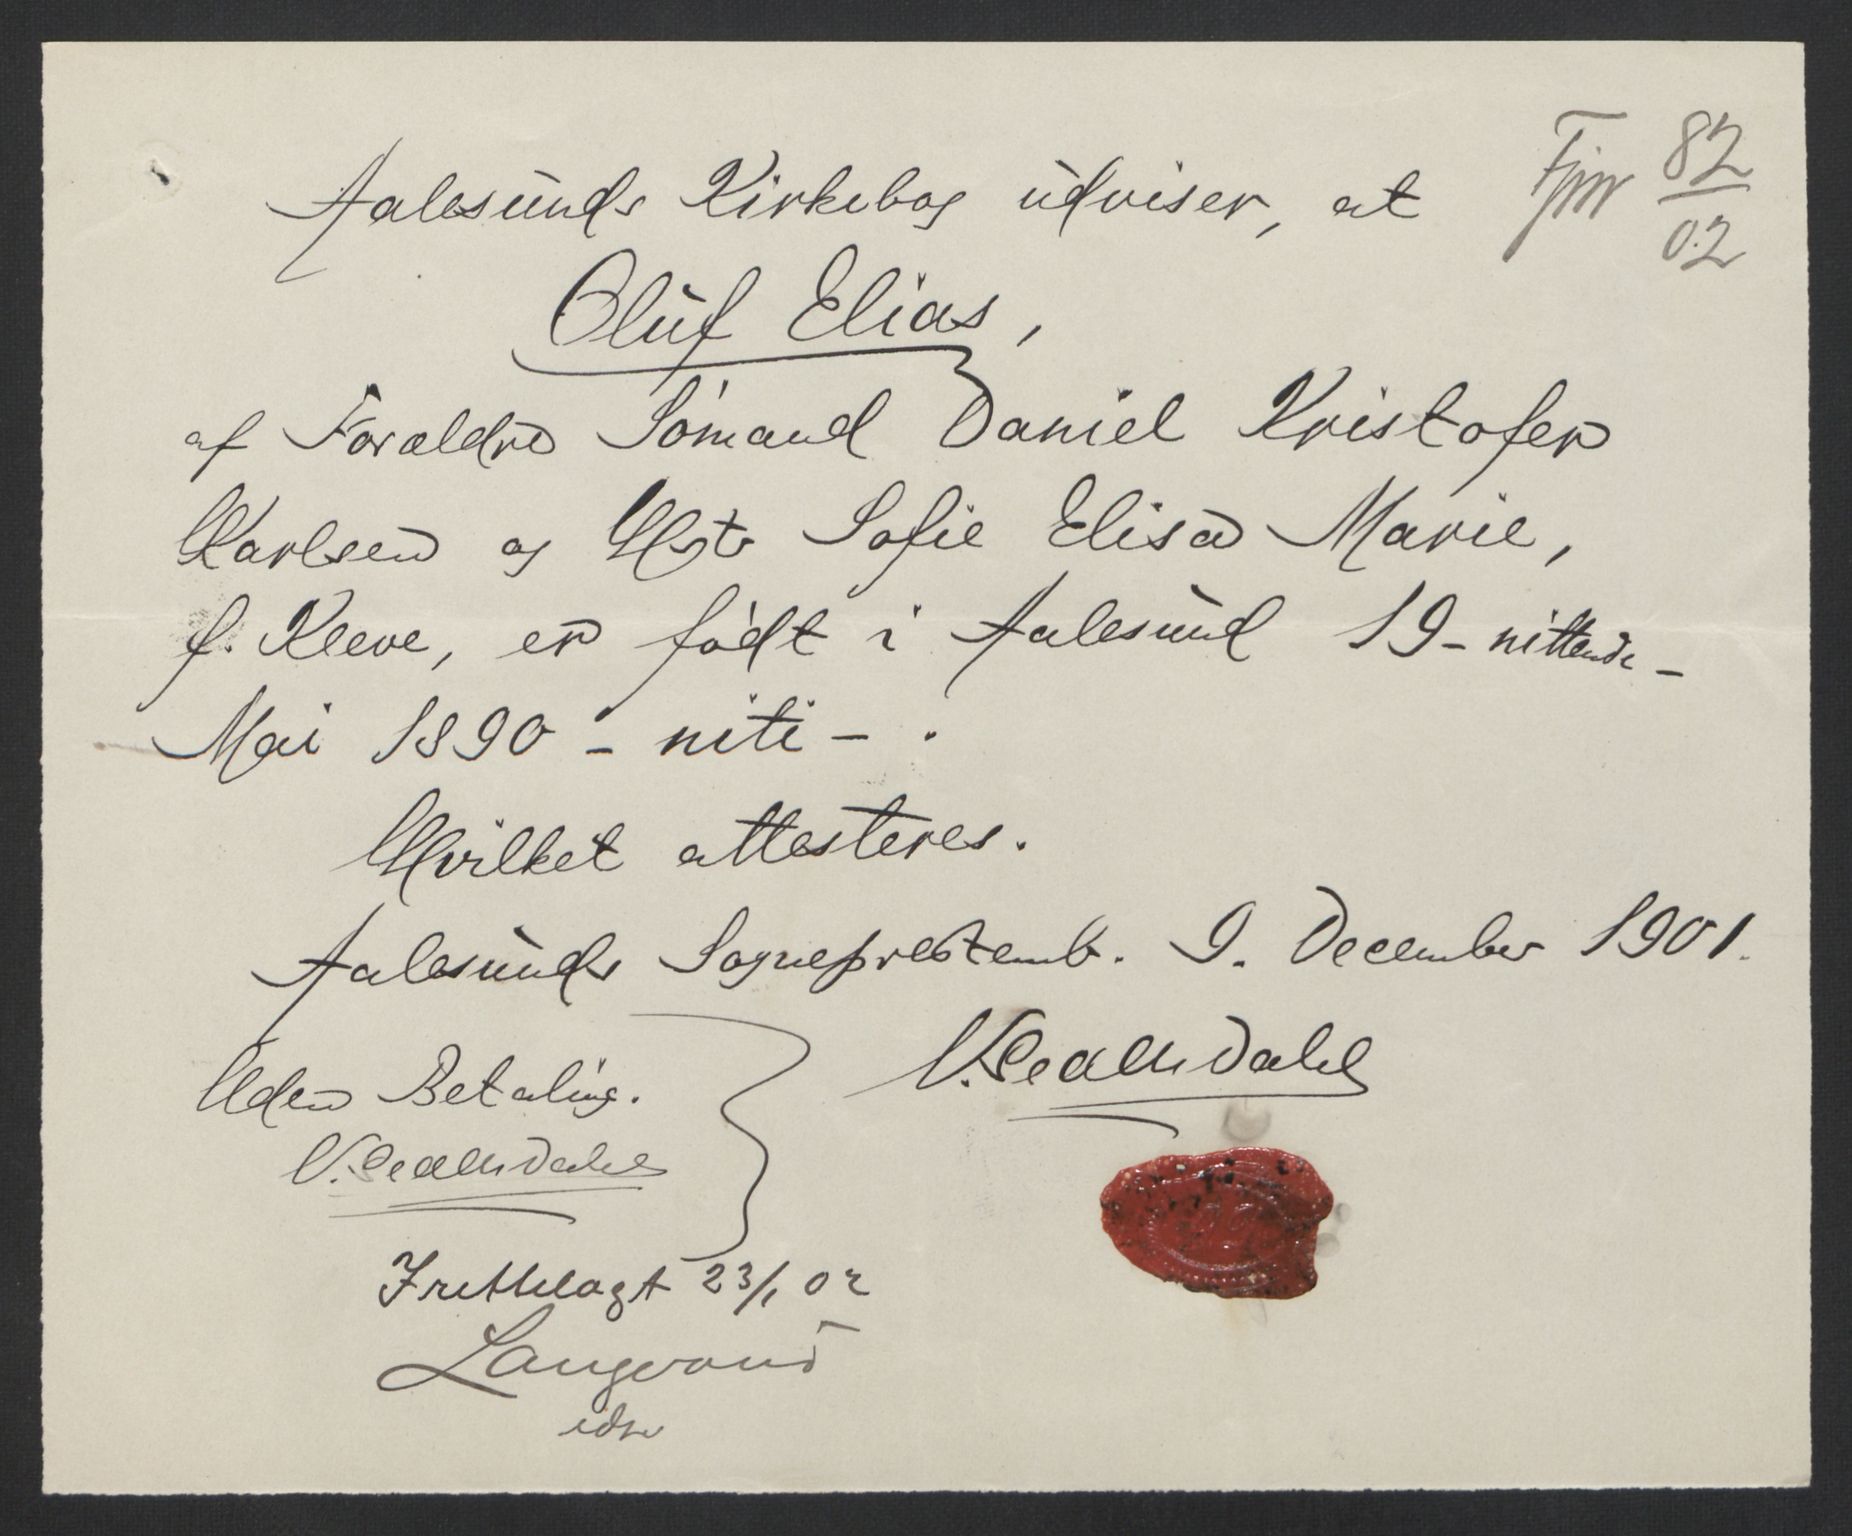 Fjnr 82/02
Aalesunds Kirkebog udviser, at
Oluf Elias,
af Forældre Sömand Daniel Kristofer
Karlsen og Hst Sofie Elisa Marie,
f. Kleve, er födt i Aalesund 19 - nittende -
Mai 1890 - niti - .
Hvilket attesteres.
Aalesunds Sogneprestemb. 9. December 1901.
Uden Betaling.
Fremlagt 23/1 02
Langvand